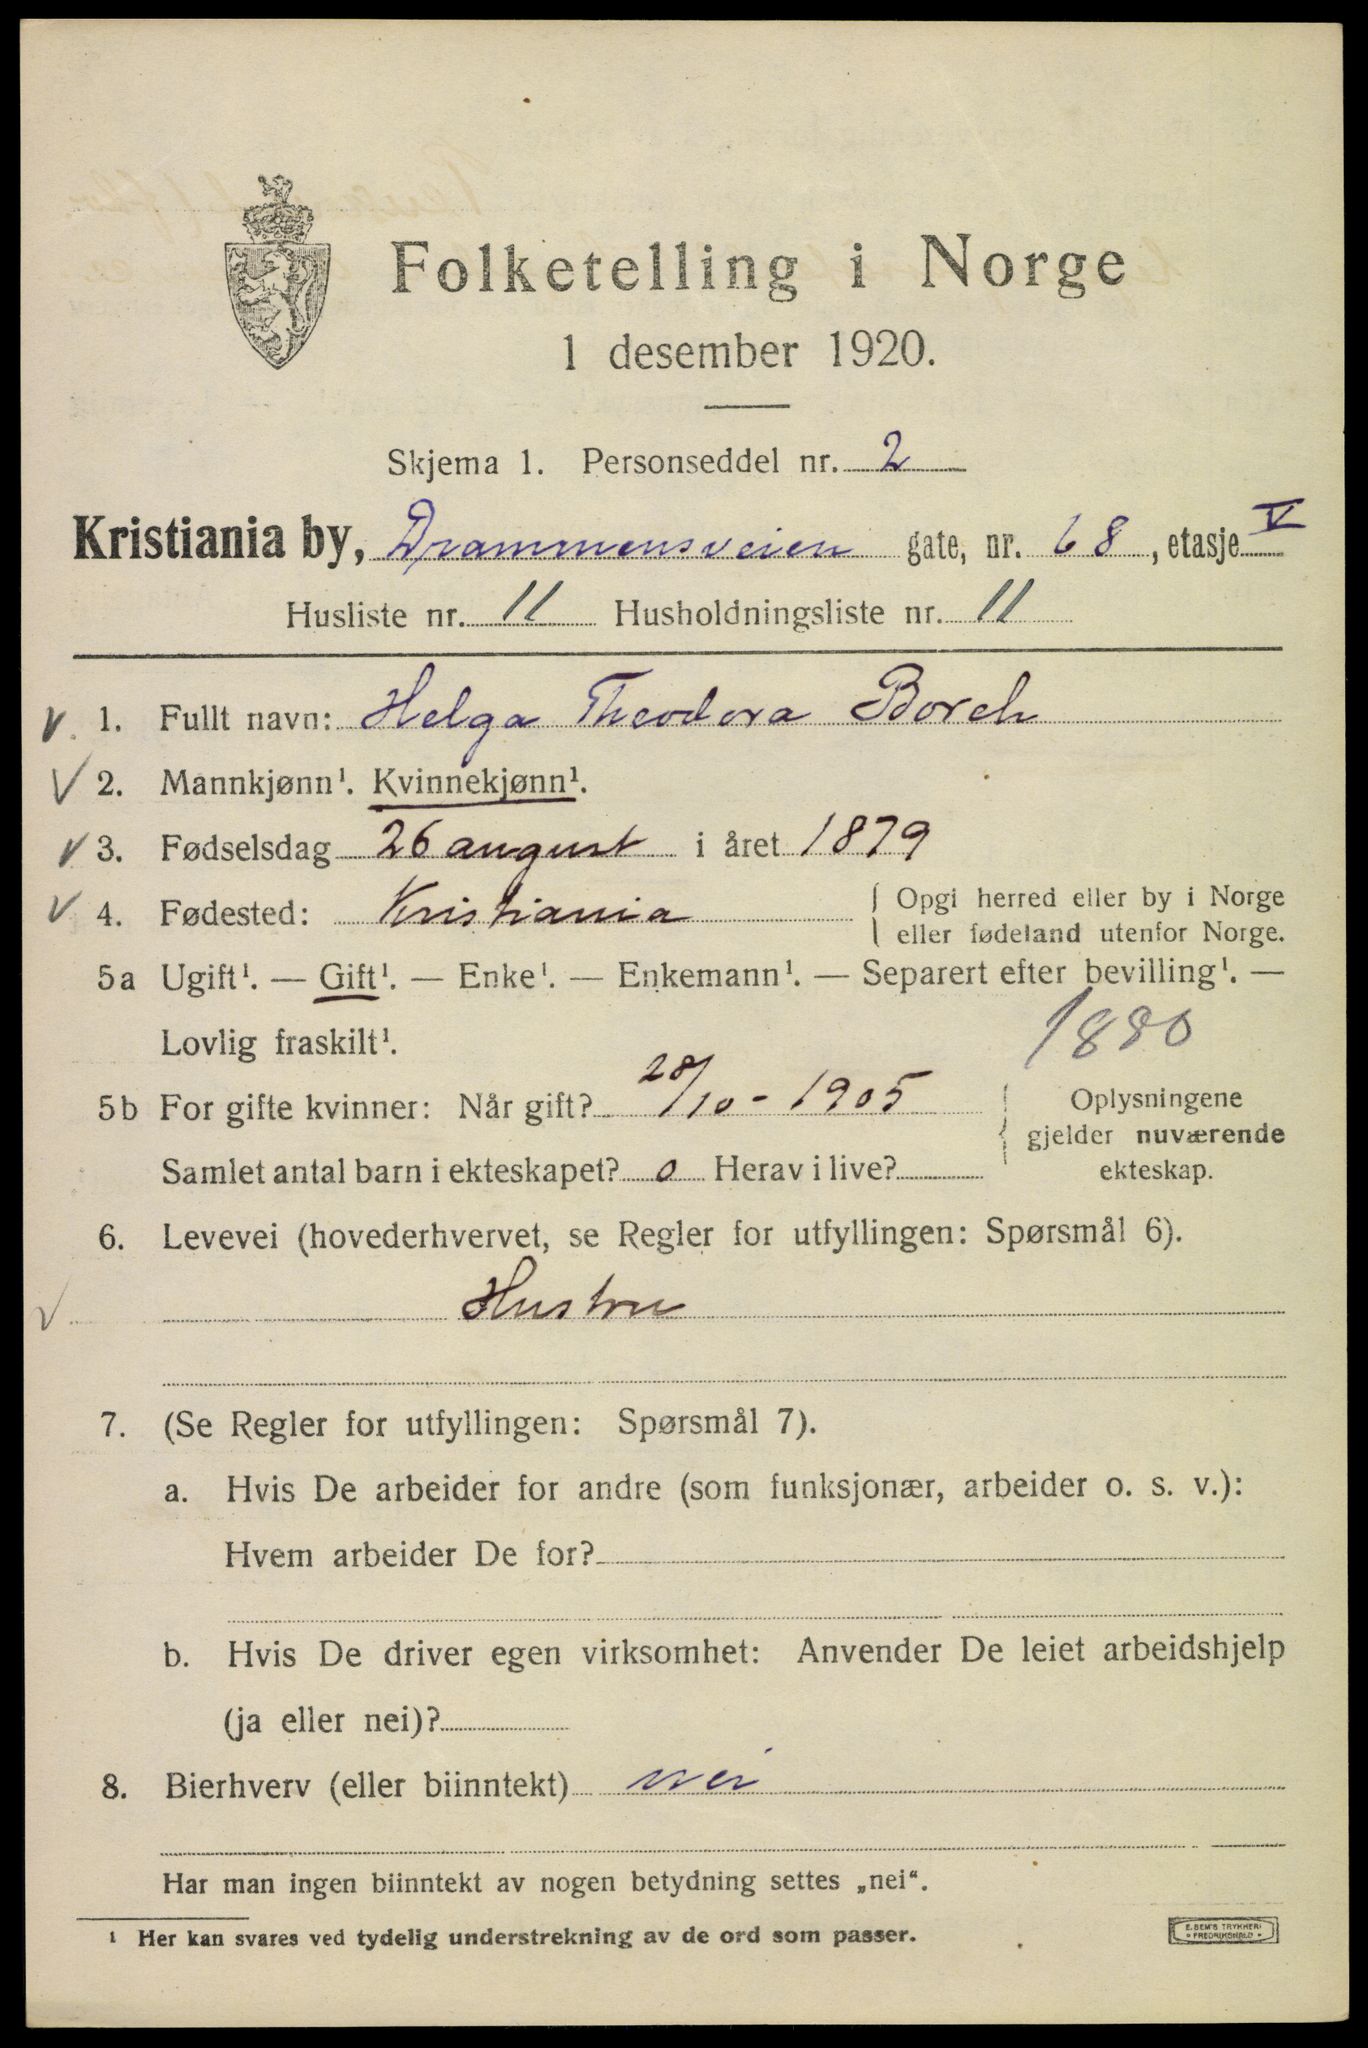 Folketelling i Norge
1 desember 1920.
Skjema 1. Personseddel nr. 2
Kristiania by, Drammensveien gate, nr. 68, etasje V
Husliste nr. 11 Husholdningsliste nr. 11
1. Fullt navn: Helga Theodora Borch
2. Mannkjønn¹. Kvinnekjønn¹.
3. Fødselsdag 26 august i året 1879
4. Fødested: Kristiania
{ Opgi herred eller by i Norge
eller fødeland utenfor Norge.
5a Ugift¹. — Gift¹. — Enke¹. — Enkemann¹. — Separert efter bevilling¹. —
Lovlig fraskilt¹.
1880
5b For gifte kvinner: Når gift? 28/10 - 1905
Samlet antal barn i ekteskapet? 0 Herav i live?
{ Oplysningene
gjelder nuværende
ekteskap.
6. Levevei (hovederhvervet, se Regler for utfyllingen: Spørsmål 6).
Hustru
7. (Se Regler for utfyllingen: Spørsmål 7).
a. Hvis De arbeider for andre (som funksjonær, arbeider o. s. v.):
Hvem arbeider De for?
b. Hvis De driver egen virksomhet: Anvender De leiet arbeidshjelp
(ja eller nei)?
8. Bierhverv (eller biinntekt) nei
Har man ingen biinntekt av nogen betydning settes „nei“.
¹ Her kan svares ved tydelig understrekning av de ord som passer.
E. SEM'S TRYKKERI
• FREDRIKSHALD •